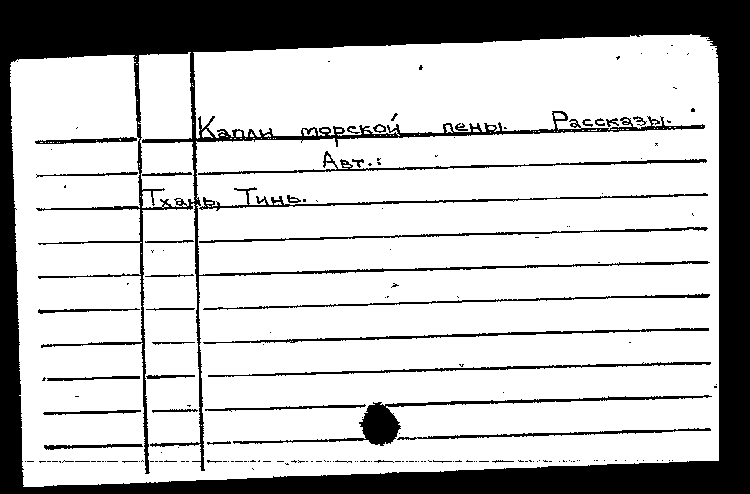 Капли морской пены. Рассказы.
Авт.:
Тхань, Тинь.